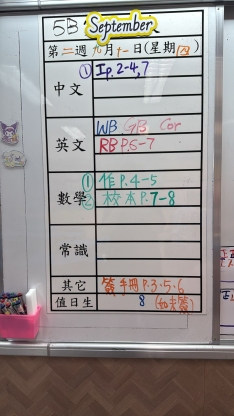 5B September
第二週九月十一日(星期四)
中文 ① Ip.2-4,7
英文 WB GB Cor
RB P.5-7
數學 ① 作 P.4-5
② 校本 P.7-8
常識
其它 簽手冊 P.3、5、6
值日生 8 (如未簽)